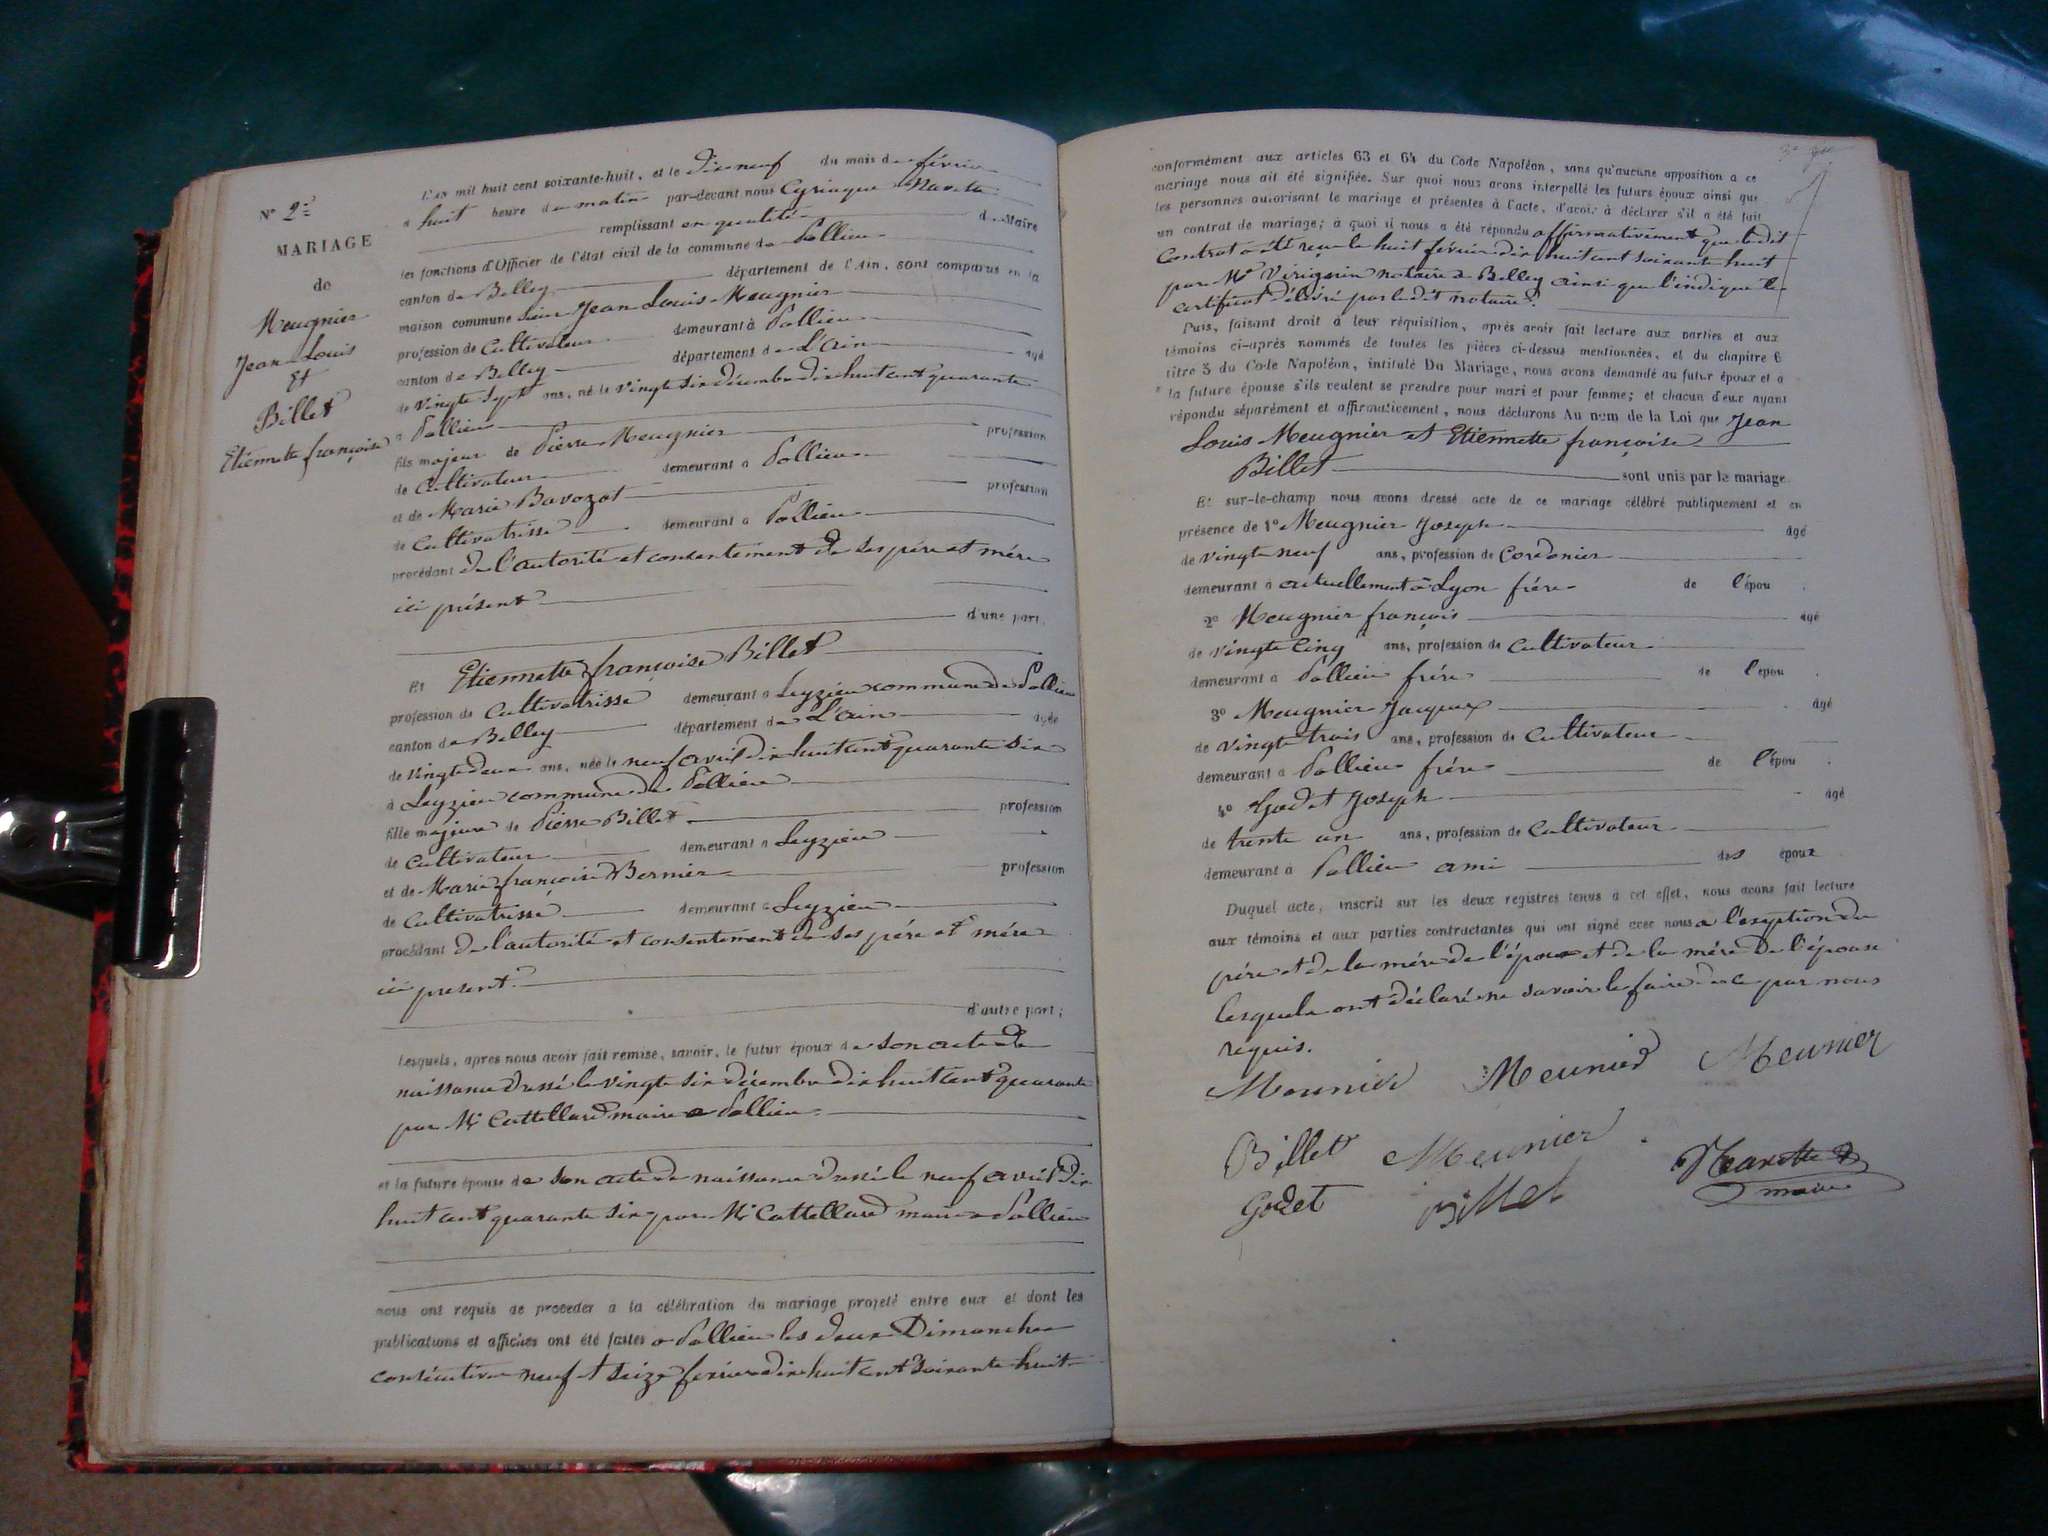 N° 2
MARIAGE
de
Meugnier
Jean Louis
Et
Billet
Etiennette françoise
L'an mil huit cent soixante-huit, et le dix neuf du mois de février
à huit heure du matin par-devant nous Cyriaque
remplissant en qualité de Maire
les fonctions d'Officier de l'état civil de la commune de Pollieu
canton de Belley département de l'Ain, sont comparus en la
maison commune sieur Jean Louis Meugnier
profession de Cultivateur demeurant à Pollieu
canton de Belley département de L'ain agé
de vingt sept ans, né le vingt six décembre dix huit cent quarante
à Pollieu
fils majeur de Pierre Meugnier profession
de Cultivateur demeurant à Pollieu
et de Marie Bavozat profession
de Cultivatrisse demeurant à Pollieu
procédant de l'autorité et consentement de ses père et mère
ici présent
d'une part,
Et Etiennette françoise Billet
profession de Cultivatrisse demeurant à Leyzieu commune de Pollieu
canton de Belley département de L'ain agée
de vingt deux ans, née le neuf avril dix huit cent quarante six
à Leyzieu commune de Pollieu
fille majeure de Pierre Billet profession
de Cultivateur demeurant à Leyzieu
et de Marie françoise Bernier profession
de Cultivatrisse demeurant à Leyzieu
procédant de l'autorité et consentement de ses père et mère
ici present
d'autre part;
Lesquels, après nous avoir fait remise, savoir, le futur époux de son acte de
naissance dressé le vingt six décembre dix huit cent quarante
par Mr Cattellard maire à Pollieu
et la future épouse de son acte de naissance dressé le neuf avril dix
huit cent quarante six par Mr Cattellard maire à Pollieu
nous ont requis de procéder à la célébration du mariage projeté entre eux et dont les
publications et affiches ont été faites à Pollieu les deux Dimanches
consécutives neuf et seize février dix huit cent soixante huit
conformément aux articles 63 et 64 du Code Napoléon, sans qu'aucune opposition à ce
mariage nous ait été signifiée. Sur quoi nous avons interpellé les futurs époux ainsi que
les personnes autorisant le mariage et présentes à l'acte, d'avoir à déclarer s'il a été fait
un contrat de mariage; à quoi il nous a été répondu affirmativement que le dit
Contrat a été reçu le huit février dix huit cent soixante huit
par Me notaire à Belley ainsi que l'indique le
certificat délivré par le dit notaire.
Puis, faisant droit à leur réquisition, après avoir fait lecture aux parties et aux
témoins ci-après nommés de toutes les pièces ci-dessus mentionnées, et du chapitre 6
titre 5 du Code Napoléon, intitulé Du Mariage, nous avons demandé au futur époux et à
la future épouse s'ils veulent se prendre pour mari et pour femme; et chacun d'eux ayant
répondu séparément et affirmativement, nous déclarons Au nom de la Loi que Jean
Louis Meugnier et Etiennette françoise
Billet sont unis par le mariage.
Et sur-le-champ nous avons dressé acte de ce mariage célébré publiquement et en
présence de 1° Meugnier Joseph agé
de vingt neuf ans, profession de Cordonier
demeurant à actuellement à Lyon frère de l'épou
2° Meugnier françois agé
de vingt Cinq ans, profession de Cultivateur
demeurant à Pollieu frère de l'épou
3° Meugnier Jacques agé
de vingt trois ans, profession de Cultivateur
demeurant à Pollieu frère de l'épou
4° Godet Joseph agé
de trente un ans, profession de Cultivateur
demeurant à Pollieu ami des époux
Duquel acte, inscrit sur les deux registres tenus à cet effet, nous avons fait lecture
aux témoins et aux parties contractantes qui ont signé avec nous a l'exeption du
père et de la mère de l'époux et de la mère de l'épouse
lesquels ont déclaré ne savoir le faire de ce par nous
requis.
Meunier Meunier Meunier
Billet Meunier
Godet Billet
maire